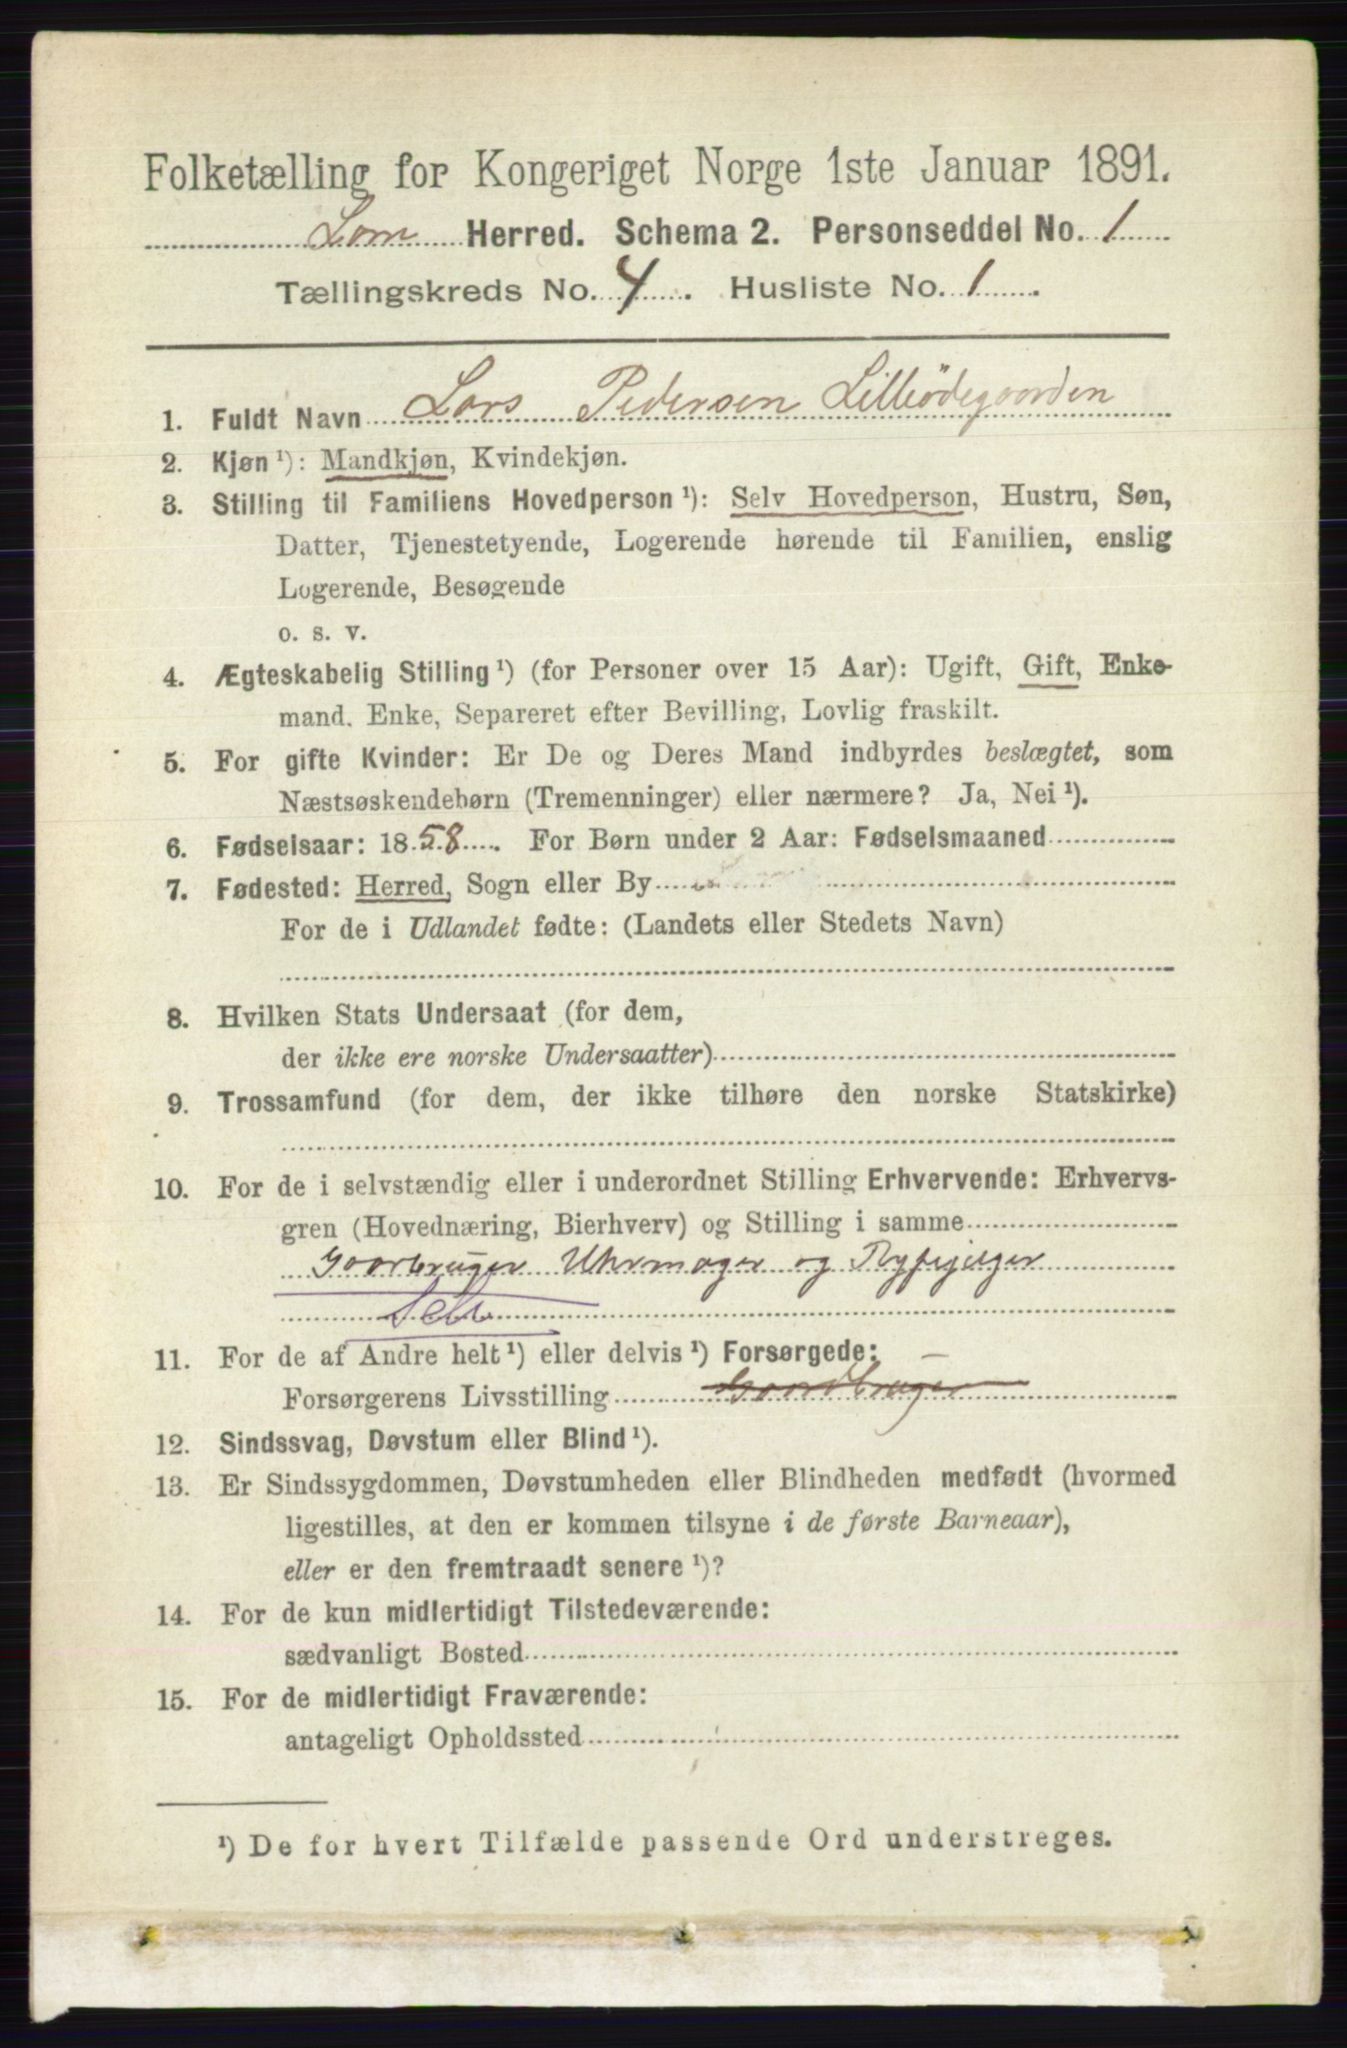 Folketælling for Kongeriget Norge 1ste Januar 1891.
Lom Herred. Schema 2. Personseddel No. 1
Tællingskreds No. 4. Husliste No. 1.
1. Fuldt Navn Lars Pedersen Lilleødegaarden
2. Kjøn ¹): Mandkjøn, Kvindekjøn.
3. Stilling til Familiens Hovedperson ¹): Selv Hovedperson, Hustru, Søn,
Datter, Tjenestetyende, Logerende hørende til Familien, enslig
Logerende, Besøgende
o. s. v.
4. Ægteskabelig Stilling ¹) (for Personer over 15 Aar): Ugift, Gift, Enke-
mand, Enke, Separeret efter Bevilling, Lovlig fraskilt.
5. For gifte Kvinder: Er De og Deres Mand indbyrdes beslægtet, som
Næstsøskendebørn (Tremenninger) eller nærmere? Ja, Nei ¹).
6. Fødselsaar: 1858. For Børn under 2 Aar: Fødselsmaaned
7. Fødested: Herred, Sogn eller By
For de i Udlandet fødte: (Landets eller Stedets Navn)
8. Hvilken Stats Undersaat (for dem,
der ikke ere norske Undersaatter)
9. Trossamfund (for dem, der ikke tilhøre den norske Statskirke)
10. For de i selvstændig eller i underordnet Stilling Erhvervende: Erhvervs-
gren (Hovednæring, Bierhverv) og Stilling i samme
Gaarbruger Uhrmager og
Selv
11. For de af Andre helt ¹) eller delvis ¹) Forsørgede: —
Forsørgerens Livsstilling Gaardbruger
12. Sindssvag, Døvstum eller Blind ¹).
13. Er Sindssygdommen, Døvstumheden eller Blindheden medfødt (hvormed
ligestilles, at den er kommen tilsyne i de første Barneaar),
eller er den fremtraadt senere ¹)?
14. For de kun midlertidigt Tilstedeværende:
sædvanligt Bosted
15. For de midlertidigt Fraværende:
antageligt Opholdssted
¹) De for hvert Tilfælde passende Ord understreges.